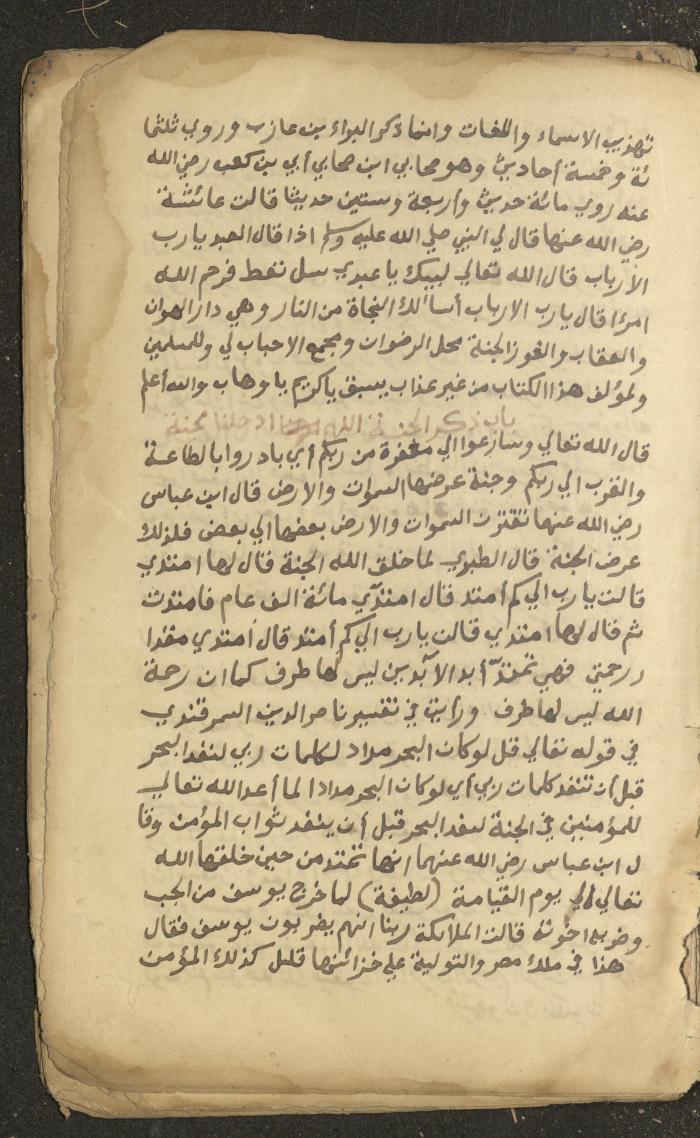 تهذيب الاسماء واللغات وانما ذكر البراء بن عازب وروي ثلثما
ئة وخمسة أحاديث وهو صحابي ابن صحابي أبي بن كعب رضي الله
عنه روي مائة حديث وأربعة وستين حديثا قالت عائشة
رضي الله عنها قال لي النبي صلي الله عليه وسلم اذا قال العبد يا رب
الأرباب قال الله تعالي لبيك يا عبدي سل تعط فرحم الله
امرءا قال يا رب الارباب أسألك النجاة من النار وهي دار الهوان
والعقاب والفوز الجنة محل الرضوان ومجمع الاحباب لي وللمسلمين
ولمؤلف هذا الكتاب من غير عذاب يسبق يا كريم يا وهاب والله أعلم
باب ذكر الجنة اللهم ادخلنا الجنة
قال الله تعالي وسارعوا الي مغفرة من ربكم أي بادروا بالطاعة
والقرب الي ربكم وجنة عرضها السموات والارض قال ابن عباس
رضي الله عنها تقترن السموات والارض بعضها الي بعض فلذلك
عرض الجنة قال الطبري لما خلق الله الجنة قال لها امتدي
قالت يا رب الي كم أمتد قال امتدي مائة الف عام فامتدت
ثم قال لها امتدي قالت يا رب الي كم أمتد قال امتدي مقدا
ر رحمتي فهي تمتد أبد الآبدين ليس لها طرف كما ان رحمة
الله ليس لها طرف ورأيت في تفسير ناصر الدين السمرقندي
في قوله تعالي قل لو كان البحر مداد لكلمات ربي لنفد البحر
قبل أن تنفد كلمات ربي أي لو كان البحر مدادا لما أعد الله تعالي
للمؤمنين في الجنة لنفد البحر قبل أن ينفد ثواب المؤمن وقا
ل ابن عباس رضي الله عنهما انها تمتد من حين خلقها الله
تعالي الي يوم القيامة (لطيفة) لما خرج يوسف من الجب
وضربه اخوته قالت الملائكة ربنا انهم يضربون يوسف فقال
هذا في ملك مصر والتولية علي خزائنها قليل كذلك المؤمن